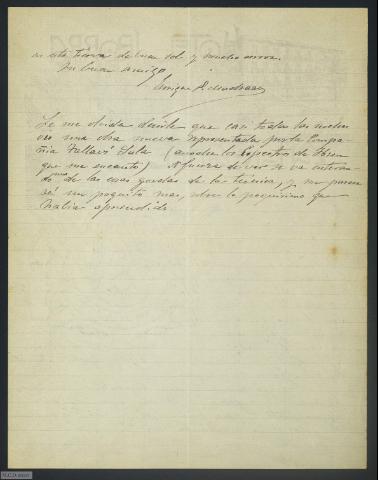 en esta tierra de buen sol y mucho arroz.
Su buen amigo
Enrique
Se me olvida decirle que casi todas las noches
veo una obra nueva representada por la Compa
ñia Tallaví Sala (anoche los Espectros de Ibsen
que me encantó) A fuerza de ver se va enteran-
do uno de las cosas gordas de la técnica, y me parece
sé un poquito mas, sobre lo poquísimo que
habia aprendido